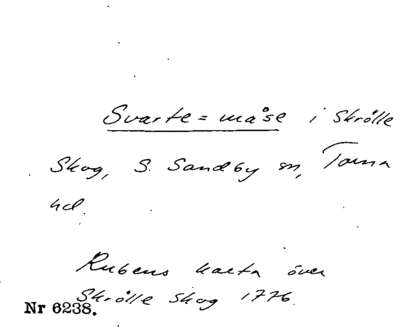 Svarte=måse i Skrölle
Skog, S. Sandby sn, Torna
hd.
Rubens karta över
Skrölle skog 1776.
Nr 6238.